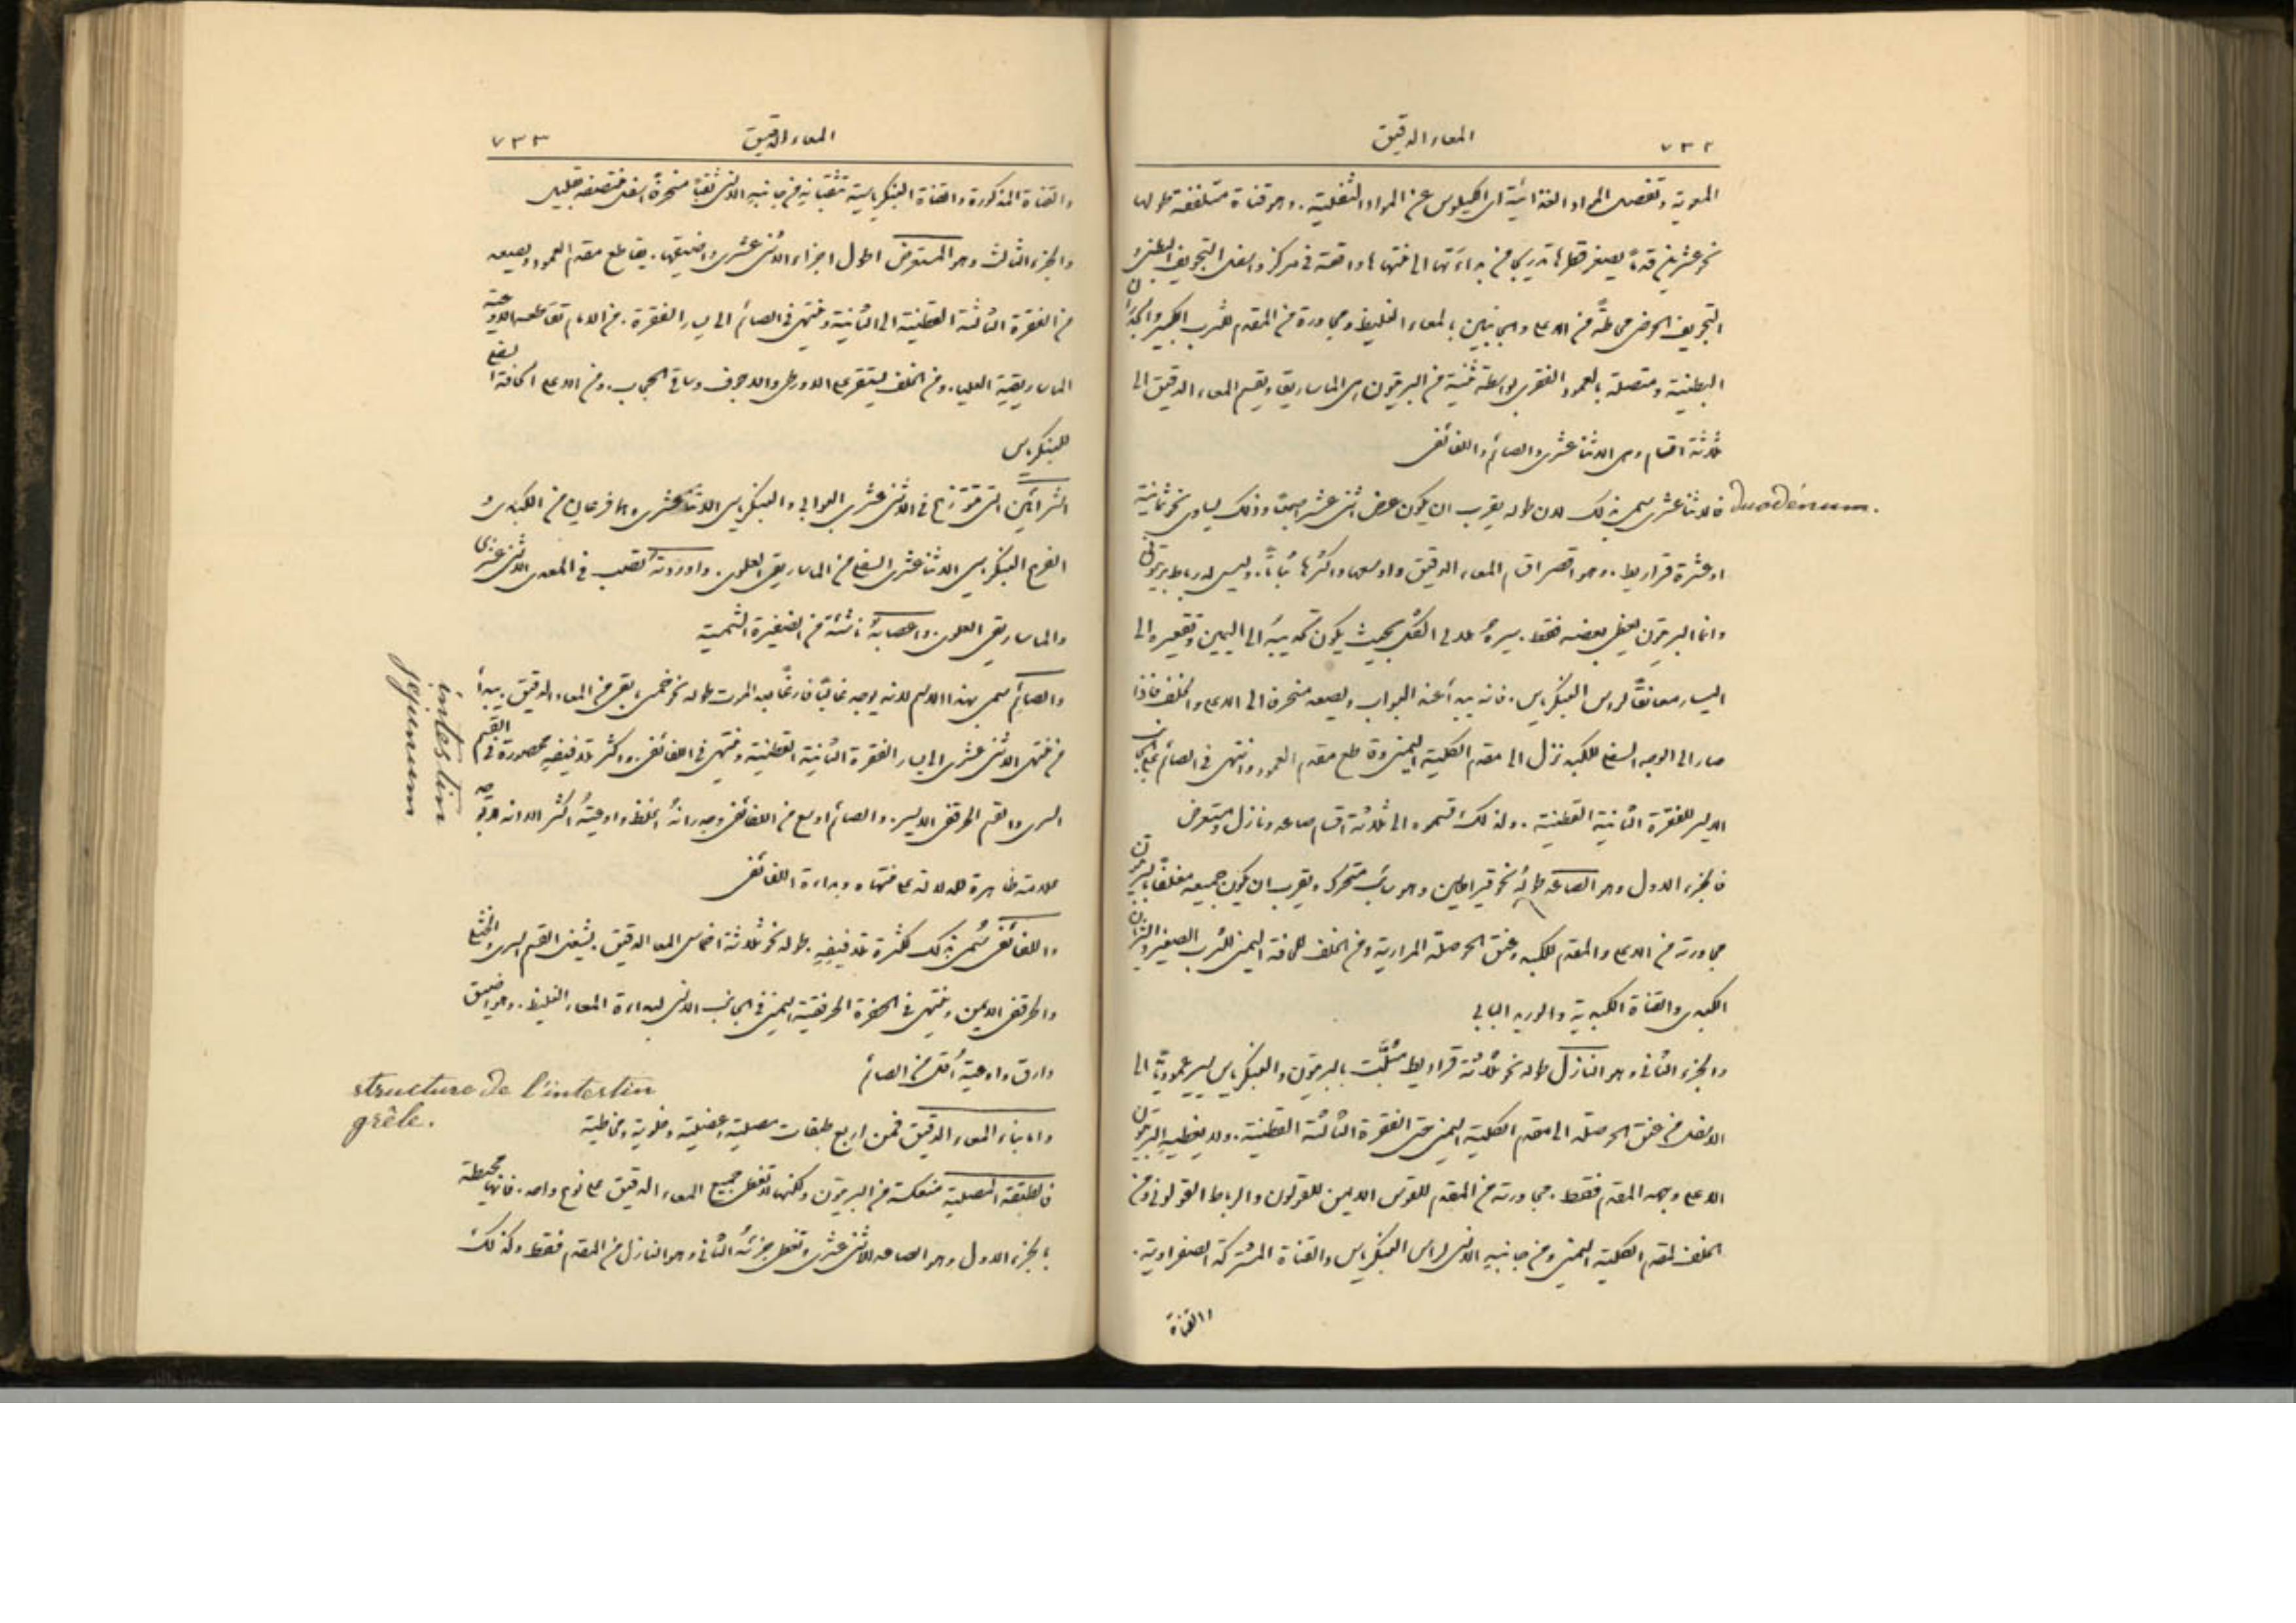 ٧٣٢ المعاء الدقيق
المعوية وتفصل المواد الغذائية اى الكيلوس عن المواد الثفلية. وهو قناة متلففة طولها
نحو عشرين قدمًا يصغر قطرها تدريجًا من بداءتها الى منتهاها واقعة فى مركز واسفل التجويف البطنى و
التجويف الحوضى محاطةً من الاعلى والجانبين بالمعاء الغليظ ومجاورة من المقدم للثرب الكبير والجدران
البطنية ومتصلة بالعمود الفقرى بواسطة ثنية من البريتون هى الماساريقا ويقسم المعاء الدقيق الى
ثلاثة اقسام وهى الاثناعشرى والصائم واللفائفى
duodénum.
فالاثناعشرى سمى بذلك لان طوله يقرب ان يكون عرض اثنى عشر اصبعًا وذلك يساوى نحو ثمانية
او عشرة قراريط. وهو اقصر اقسام المعاء الدقيق واوسعها واكثرها ثباتًا. وليس له رباط بريتونى
وانما البريتون يغطى بعضه فقط. سيرهُ هلالى الشكل بحيث يكون تحديبهُ الى اليمين وتقعيره الى
اليسار معانقًا لراس البنكرياس. فانه يبدأ عند البواب ويصعد منحرفة الى الاعلى والخلف فاذا
صار الى الوجه السفلى للكبد نزل الى مقدم الكلية اليمنى وقاطع مقدم العمود وانتهى فى الصائم على الجانب
الايسر للفقرة الثانية القطنية. ولذلك قسموه الى ثلاثة اقسام صاعد ونازل ومستعرض
فالجزء الاول وهو الصاعد طولهُ نحو قيراطين وهو سائب متحرك ويقرب ان يكون جميعه مغلفًا بالبريتون
مجاورته من الاعلى والمقدم للكبد وعنق الحوصلة المرارية ومن الخلف للحافة اليمنى للثرب الصغير والشريان
الكبدى والقناة الكبدية والوريد البابى
والجزء الثانى وهو النازل طوله نحو ثلاثة قراريط مثبَّت بالبريتون والبنكرياس يسير عموديًّا الى
الاسفل من عنق الحوصلة الى مقدم الكلية اليمنى حتى الفقرة الثالثة القطنية. ولا يغطيهِ البريتون
الا على وجهه المقدم فقط. مجاورته من المقدم للقوس الايمن للقولون والرباط القولونى ومن
الخلف لمقدم الكلية اليمنى ومن جانبه الانسى لراس البنكرياس والقناة المشتركة الصفراوية.
القناة
٧٣٣ المعاء الدقيق
والقناة المذكورة والقناة البنكرياسية تثقبانه من جانبه الانسى ثقبًا منحرفًا اسفل منتصفه بقليل
والجزء الثالث وهو المستعرض اطول اجزاء الاثنى عشرى واضيقها. يقاطع مقدم العمود ويصعد
من الفقرة الثالثة القطنية الى الثانية وينتهى فى الصائم الى يسار الفقرة. من الامام تقاطعه الاوعية
الماساريقية العليا. ومن الخلف يستقر على الاورطى والاجوف وساقى الحجاب. ومن الاعلى الحافة السفلى
للبنكرياس
الشرائين التى تتوزع فى الاثنى عشرى البوابى والبنكرياسى الاثناعشرى وهما فرعان من الكبدى و
الفرع البنكرياسى الاثناعشرى السفلى من الماساريقى العلوى. واوردتهُ تصب فى المعدى الاثنى عشرى
والماساريقى العلوى. واعصابهُ ناشئة من الضفيرة الشمسية
intestin
jejunum
والصائم سمى بهذا الاسم لانه يوجد غالبًا فارغًا بعد الموت طوله نحو خمسى ما بقى من المعاء الدقيق. يبدأ
من منتهى الاثنى عشرى الى يسار الفقرة الثانية القطنية وينتهى فى اللفائفى. واكثر تلافيفه محصورة فى القسم
السرى والقسم الحرقفى الايسر. والصائم اوسع من اللفائفى وجدرانهُ اغلظ واوعيتهُ اكثر الا انه لا يوجد
علامة ظاهرة للدلالة على منتهاه وبداءة اللفائفى
واللفائفى سُمى بذلك لكثرة تلافيفهِ. طوله نحو ثلاثة اخماس المعا الدقيق. يشغل القسم السرى والخثلى
والحرقفى الايمن وينتهى فى الحفرة الحرقفية اليمنى فى الجانب الانسى لبداءة المعاء الغليظ. وهو اضيق
وارق واوعيتهُ اقل من الصائم
structure de l'intestin
grêle.
واما بناء المعاء الدقيق فمن اربع طبقات مصلية وعضلية وخلوية ومخاطية
فالطبقة المصلية منعكسة من البريتون ولكنها لا تغطى جميع المعاء الدقيق على نوع واحد. فانها محيطة
بالجزء الاول وهو الصاعد للاثنى عشرى وتغطى جزئهُ الثانى وهو النازل من المقدم فقط وكذلك